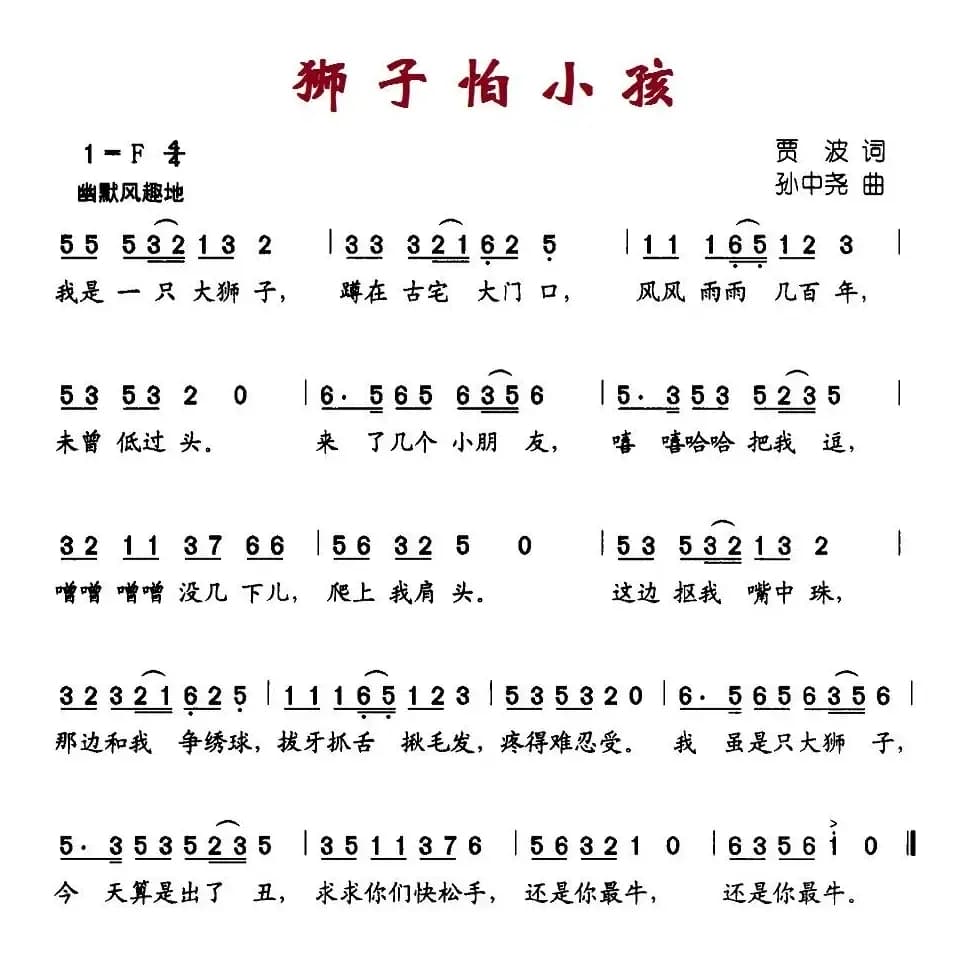 狮子怕小孩
1=F 4/4
贾 波 词
幽默风趣地
孙中尧 曲
55 532 13 2 | 33 321 62 5 | 11 165 12 3 |
我是 一只 大狮 子， 蹲在 古宅 大门 口， 风风 雨雨 几百 年，
53 53 2 0 | 6· 5 65 635 6 | 5· 3 53 523 5 |
未曾 低过 头。 来 了几个 小朋 友， 嘻 嘻哈哈 把我 逗，
32 11 37 66 | 56 32 5 0 | 53 532 13 2 |
噌噌 噌噌 没几 下儿， 爬上 我肩 头。 这边 抠我 嘴中 珠，
32 321 62 5 | 11 165 12 3 | 53 53 2 0 | 6· 5 65 635 6 |
那边和我 争绣球， 拔牙抓舌 揪毛发， 疼得难忍受。 我 虽是只大狮 子，
5· 3 53 523 5 | 35 11 37 6 | 56 32 1 0 | 63 56 i 0 ‖
今 天算是出了 丑， 求求你们快松手， 还是你最牛， 还是你最牛。